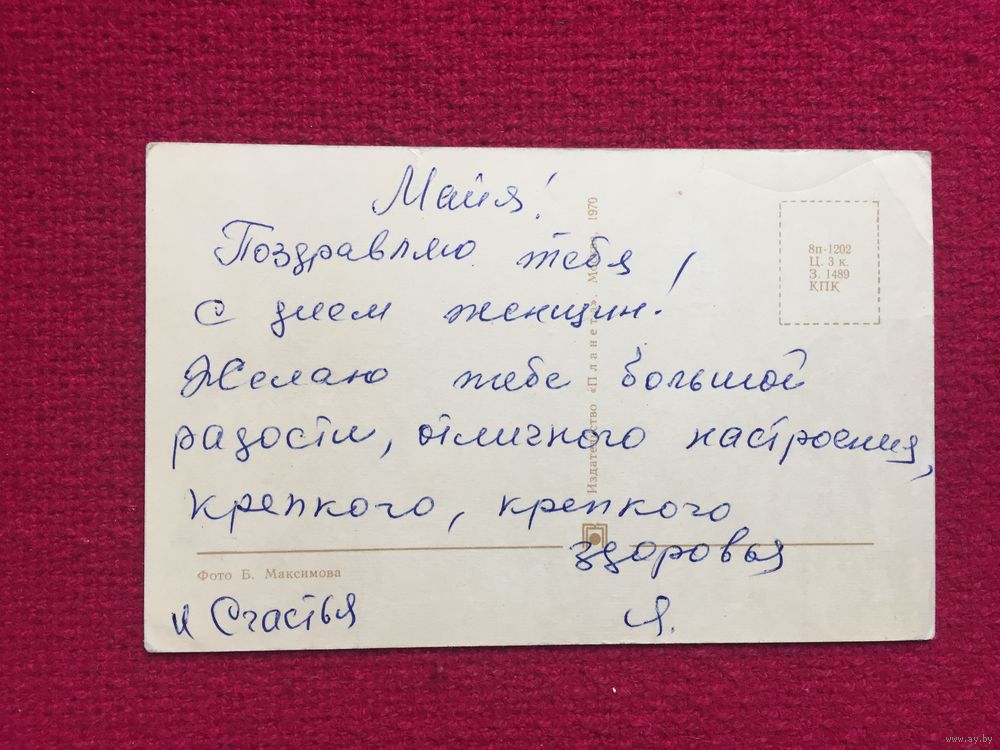 Майя!
Поздравляю тебя
с днем женщин!
Желаю тебе большой
радости, отличного настроения,
крепкого, крепкого
здоровья
и Счастья Я.
Фото Б. Максимова
Издательство «Планета». Москва. 1970
8п-1202
Ц. 3 к.
З. 1489
КПК
www.ay.by